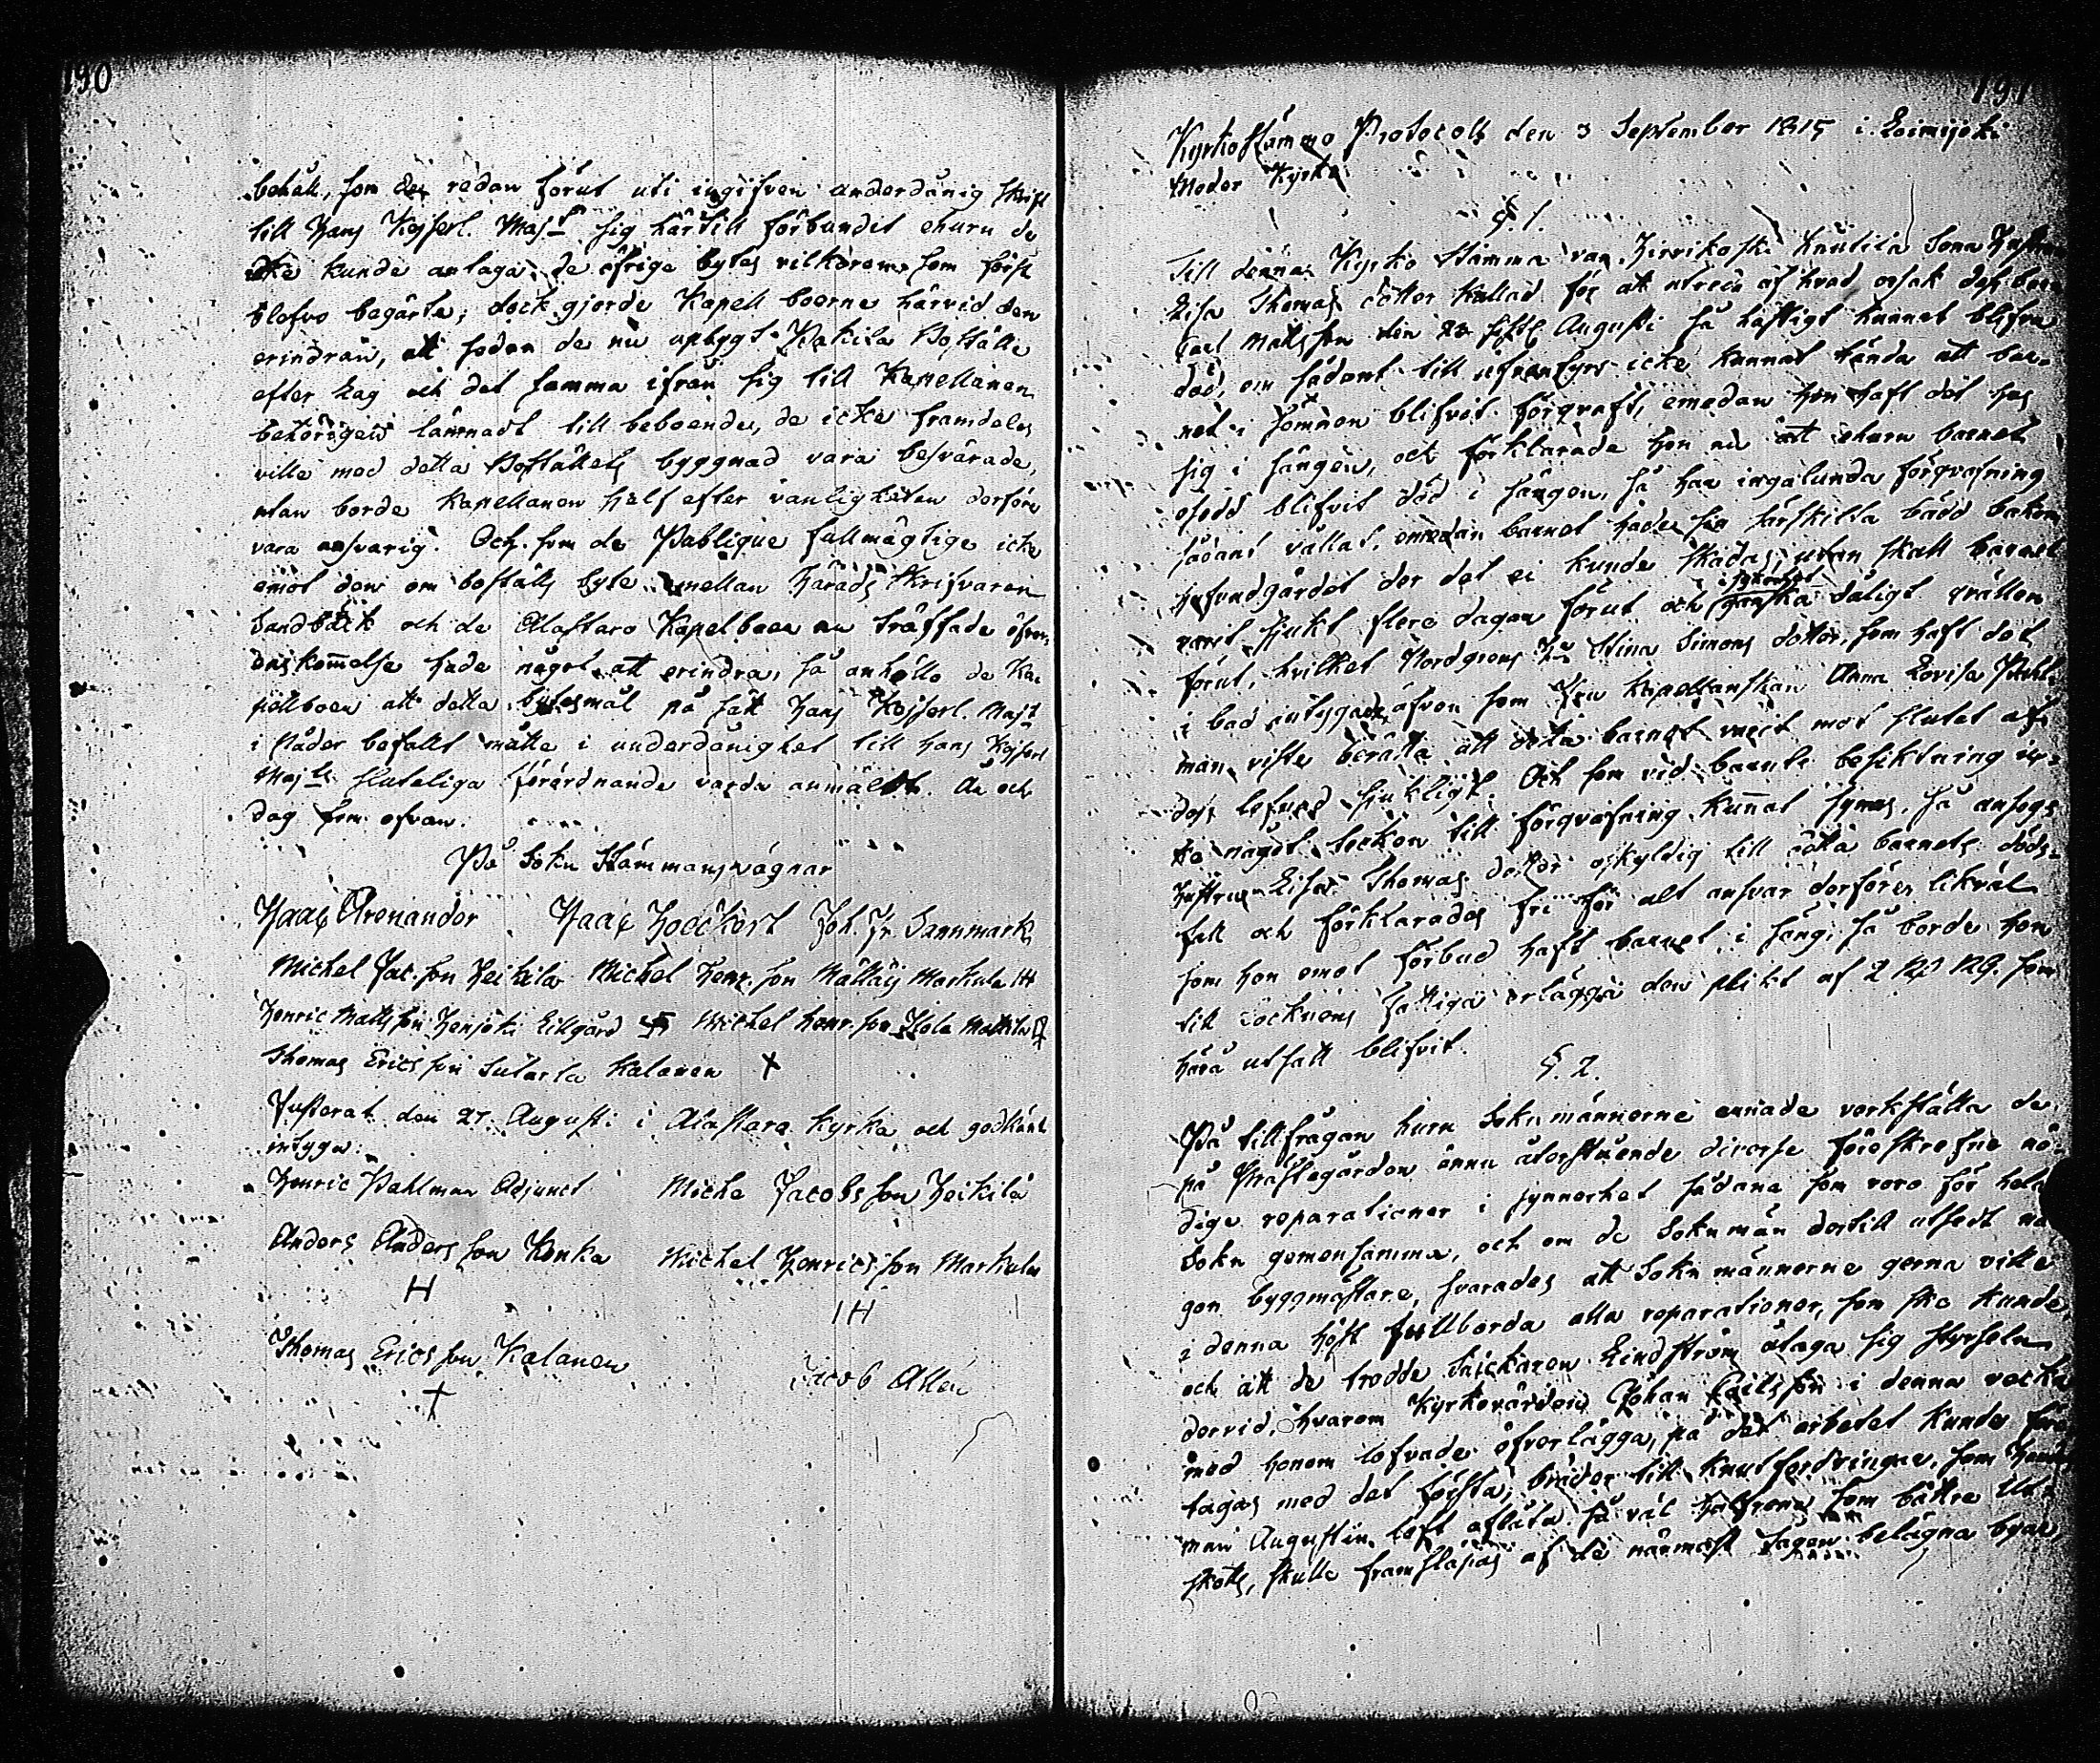 190
behåll, som de redan förut uti ingifven underdånig skrift
till Hans Kejserl. Majt sig härtill förbundit ehuru de
icke kunde antaga de öfrige bytes vilkoren som först
blefvo begärta; dock gjorde Kapell boerne härvid den
erindran, att sedan de nu upbygt Pakila Boställe
efter Lag och det samma ifrån sig till Kapellanen
behörigen lämnadt till beboende, de icke framdeles
ville med detta Boställets byggnad vara besvärade,
utan borde Kapellanen sjelf efter vanligheten derföre
vara ansvarig. Och som de Publique fullmägtige icke
emot den om boställs byte mellan Härads Skrifvaren
Sandbäck och de Alastaro Kapelboer nu träffade öfver-
enskommelse hade något att erindra, så anhöllo de Ka-
pellboer att detta bytesmål på sätt Hans Kejserl. Majt
i Nåder befallt måtte i underdånighet till Hans Kejserl
Majts sluteliga förordnande varda anmäldt. År och
dag som ofvan.
På Sokn Stämmans vägnar
Isaac Arenander Isaac Hoeckert Joh. Fr. Sannmark
Michel Jac.son Heikilä Michel Henr.son Mälläis Markula IH
Henric Matts son Henseki Eikgård Michel Henr.son Isola Mattila
Thomas Erics son Sutarla Kalanen X
Justerat den 27 Augusti i Alastaro Kyrka och godkändt
intyga:
Henric Pahlman Adjunct Miche Jacobs son Heikilä
Anders Anders son Konka Michel Henrics son Markula
H IH
Thomas Erics son Kalanen Jacob Allén
X
191
Kyrkostämmo Protocoll den 3 September 1815 i Loimijoki
Moder Kyrka
§. 1.
Till denna Kyrko Stämma var Hirvikoski Knutila Sona Hustru
Lisa Thomas dotter Kallad för att utreda af hvad orsak dess barn
Carl Matts son den 22 sistl. Augusti så hastigt kunnat blifva
död, om sådant till äfventyrs icke kunnat hända att bar-
net i sömnen blifvit förqvaft, emedan hon haft det hos
sig i sängen, och förklarade hon nu att ehuru barnet
blifvit död i sängen, så har ingalunda förqvafning
sådant vållat, emedan barnet hade sin särskilta bädd bakom
hufvudgärdet der det ei kunde skadas, utan skall barnet
varit sjukt flere dagar förut och i synnerhet dåligt qvällen
förut, hvilket Nordgrens Hu Stina Simons dotter, som haft det
i bad intygade, äfven som Fru Kapellanskan Anna Lovisa Pahl-
man viste berätta att detta barnet varit mot slutet af
dess lefnad sjukligt. Och som vid barnets besiktning in-
te något teckon till förqvafning kunnat synas, så ansågs
Hustrun Lisa Thomas dotter oskyldig till detta barnets döds-
fall och förklarades fri för alt ansvar derföre; likväl
som hon emot förbud haft barnet i säng, så borde hon
till Socknens fattiga erlägga den plikt af 2 Rd Rg. som
härå utsatt blifvit.
§. 2.
På tillfrågan huru Sokn männerne ernade verkställa de
på Prästegården ännu återstående diverse föreskrefne nö-
dige reparationer i synnerhet sådana som voro för hela
Sokn gemensamma, och om de Sokn män dertill utsedt nå-
gon byggmästare, svarades att Sokn männerne gerna ville
i denna höst fullborda alla reparationer, som ske kunde,
och att de trodde Snickaren Lindström åtaga sig styrseln
dervid, hvarom Kyrkovärden Johan Carlsson i denna vecka
med honom lofvade öfverlägga, på det arbetet kunde före-
tagas med det första; bräder till Knutfordringar, som
man Augustin loft aflåta så väl som bättre
skott, skulle framsläpas af de närmast Sagen belägna byar,